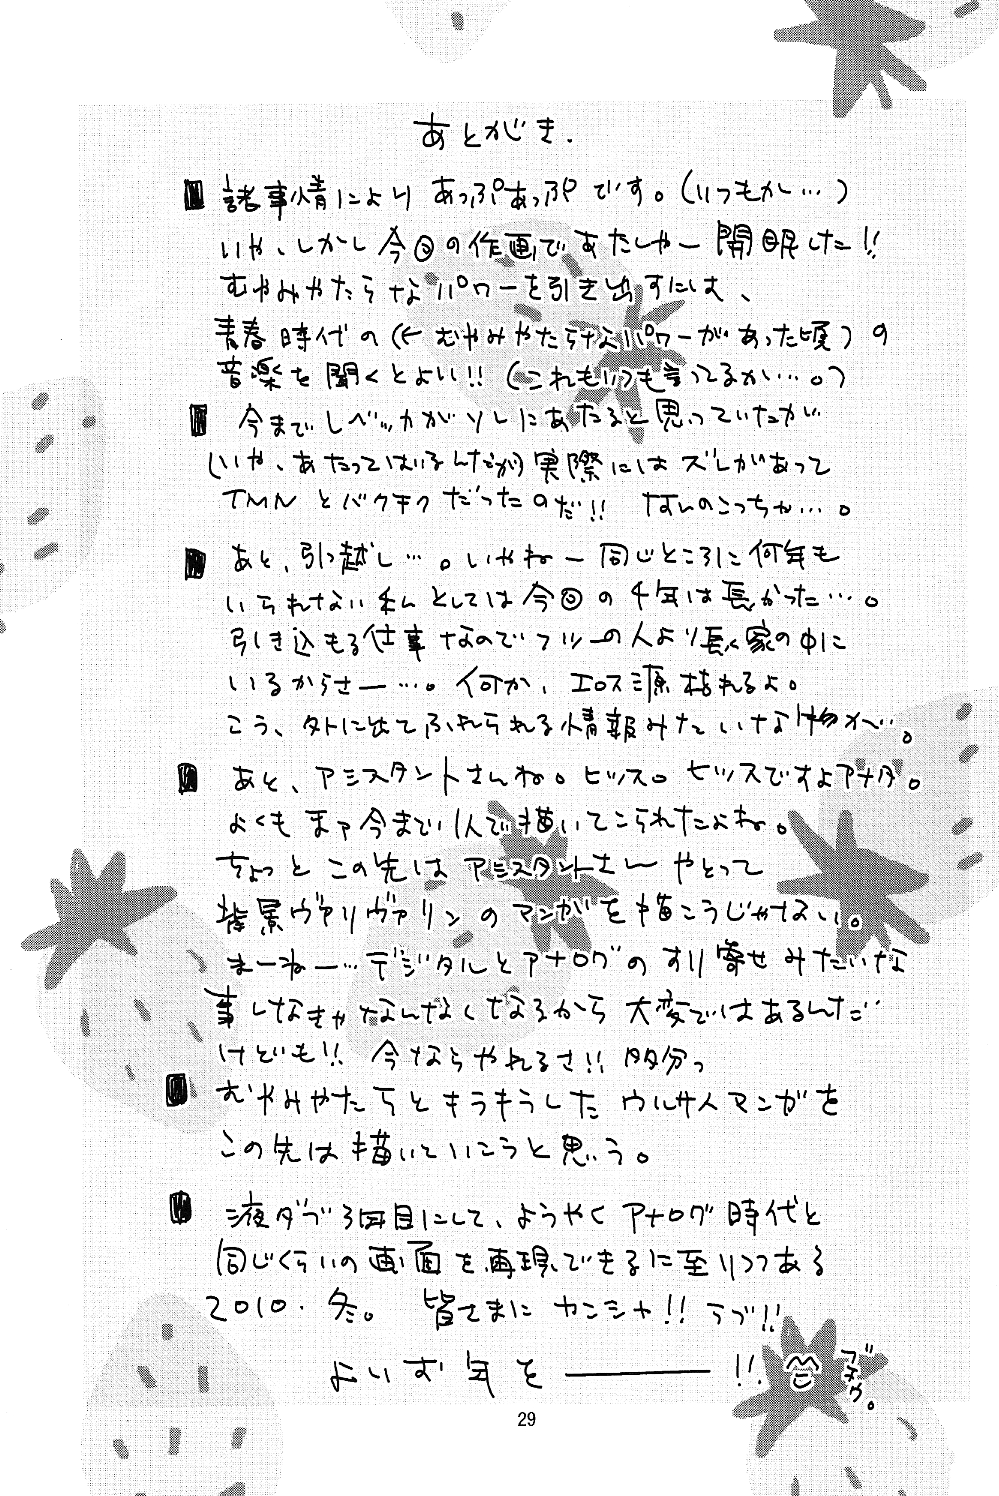 あとがき.
諸事情により あっぷあっぷです。(いつもか…)
いや、しかし今回の作画であたしゃー開眼した!!
むやみやたらなパワーを引き出すには、
青春時代の(←むやみやたらなパワーがあった頃)の
音楽を聞くとよい!! (これもいつも言ってるか…。)
今までレベッカがソレにあたると思っていたが
(いや、あたってはいるんだが)実際にはズレがあって
TMNとバクチクだったのだ!! なんのこっちゃ…。
あと、引っ越し…。いやねー同じところに何年も
いられない私としては今回の4年は長かった…。
引き込もる仕事なのでフツーの人より長く家の中に
いるからさー…。何か、エロス源枯れるよ。
こう、外に出てふれられる情報みたいな物が…。
あと、アシスタントさんね。ヒッス。ヒッスですよアナタ。
よくもまァ今まで1人で描いてこられたよね。
ちょっとこの先はアシスタントさんやとって
背景ヴァリヴァリンのマンガを描こうじゃない。
まーねー…デジタルとアナログのすり寄せみたいな
事しなきゃなんなくなるから大変ではあるんだ
けども!! 今ならやれるさ!! 多分っ
むやみやたらとキラキラしたウルサイマンガを
この先は描いていこうと思う。
液タブ3回目にして、ようやくアナログ時代と
同じくらいの画面を再現できるに至りつつある
2010.冬。 皆さまにカンシャ!! ラブ!!
よいお年を――――!!
ブチゥ。
29